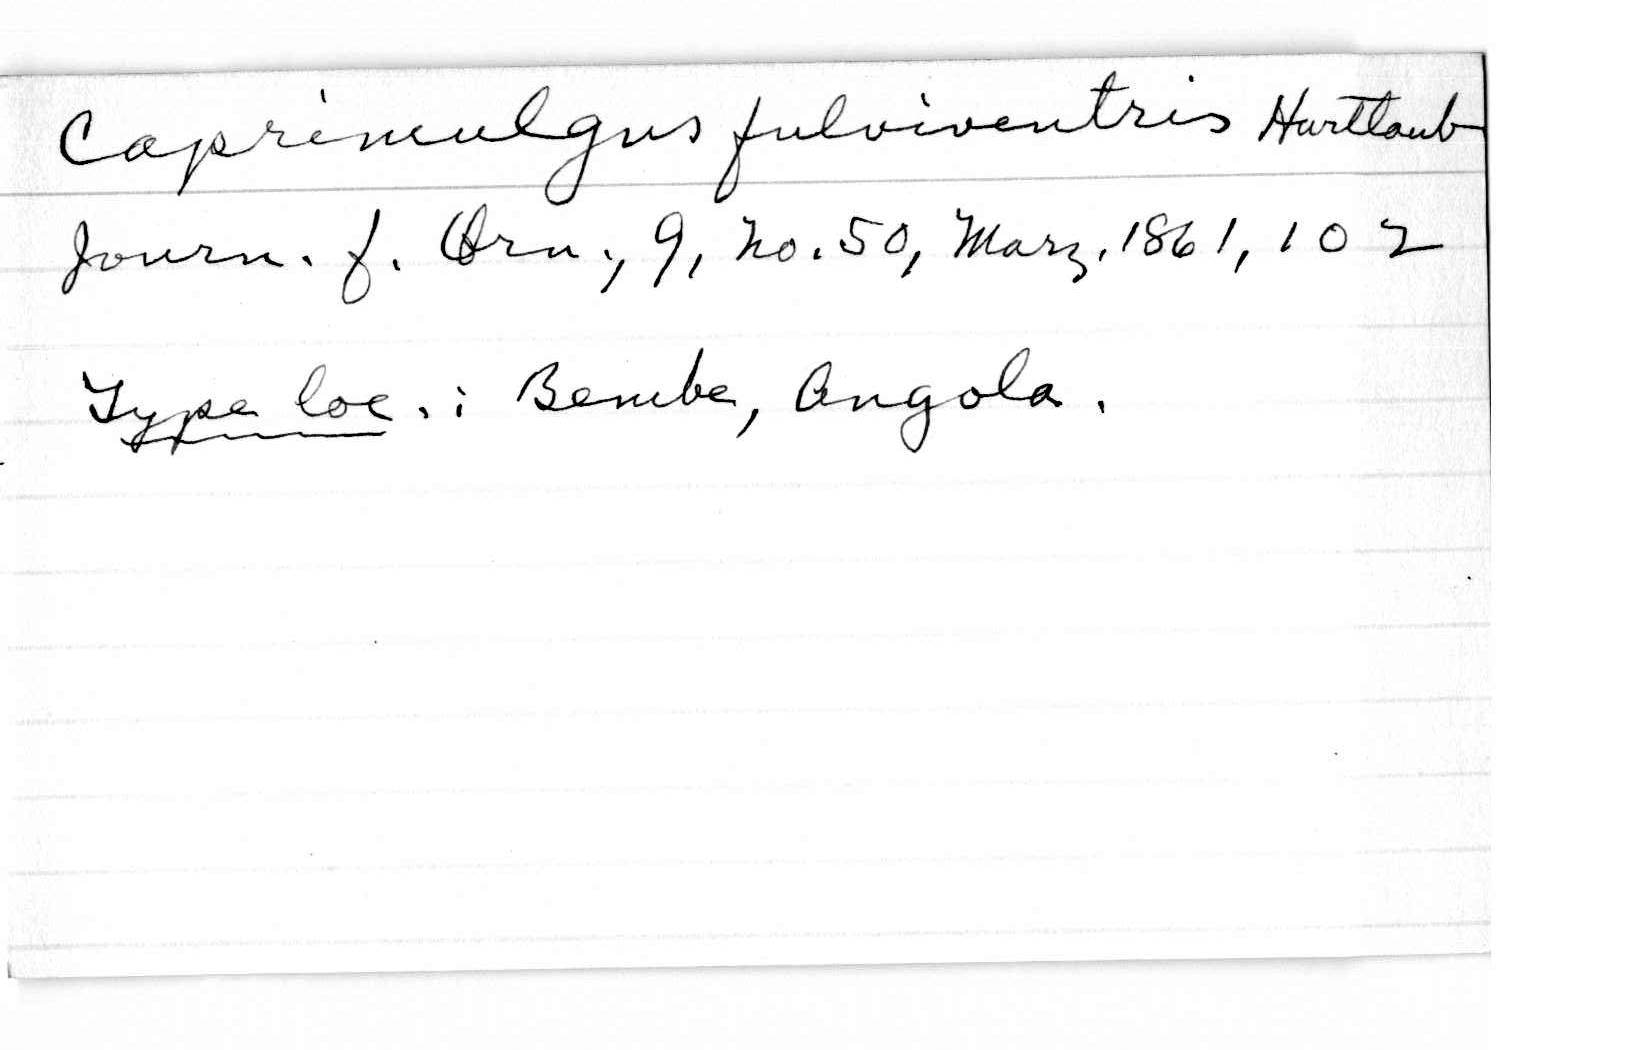 Caprimulgus fulviventris Hartlaub
Journ. f. Orn., 9, no. 50, Marz, 1861, 102
Type loc.: Bembe, Angola.